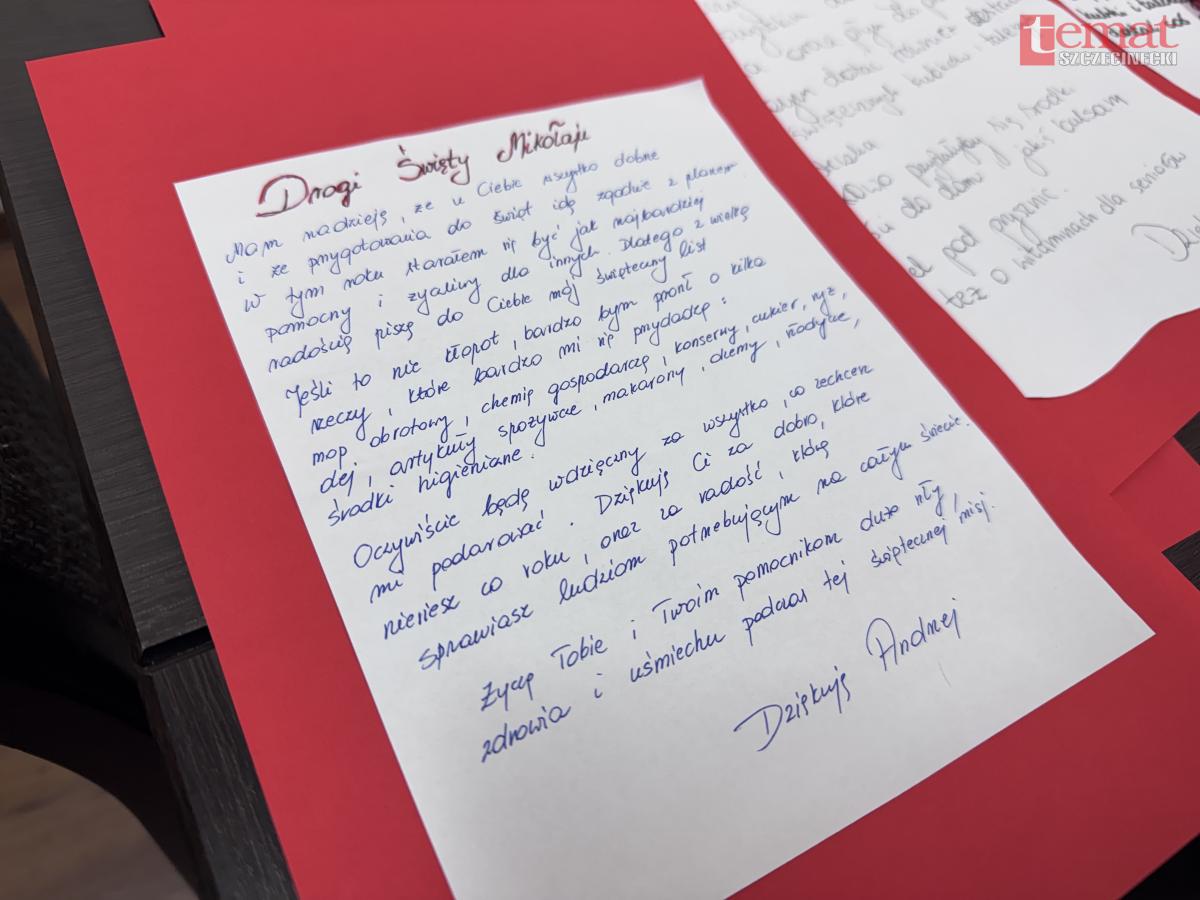 Drogi Święty Mikołaju
Mam nadzieję, że u Ciebie wszystko dobrze
i że przygotowania do świąt idą zgodnie z planem.
W tym roku starałem się być jak najbardziej
pomocny i życzliwy dla innych. Dlatego z wielką
radością piszę do Ciebie mój świąteczny list
Jeśli to nie kłopot, bardzo bym prosił o kilka
rzeczy, które bardzo mi się przydadzą:
mop obrotowy, chemię gospodarczą, konserwy, cukier, ryż,
olej, artykuły spożywcze, makarony, dżemy, słodycze,
środki higieniczne.
Oczywiście będę wdzięczny za wszystko, co zechcesz
mi podarować. Dziękuję Ci za dobro, które
niesiesz co roku, oraz za radość, którą
sprawiasz ludziom potrzebującym na całym świecie.
Życzę Tobie i Twoim pomocnikom dużo siły,
zdrowia i uśmiechu podczas tej świątecznej misji.
Dziękuję Andrzej
dostać również
świątecznych kubków i
się środki
do dom jakiś balsam
żel pod prysznic.
też o witaminach dla seniorów
temat
SZCZECINECKI